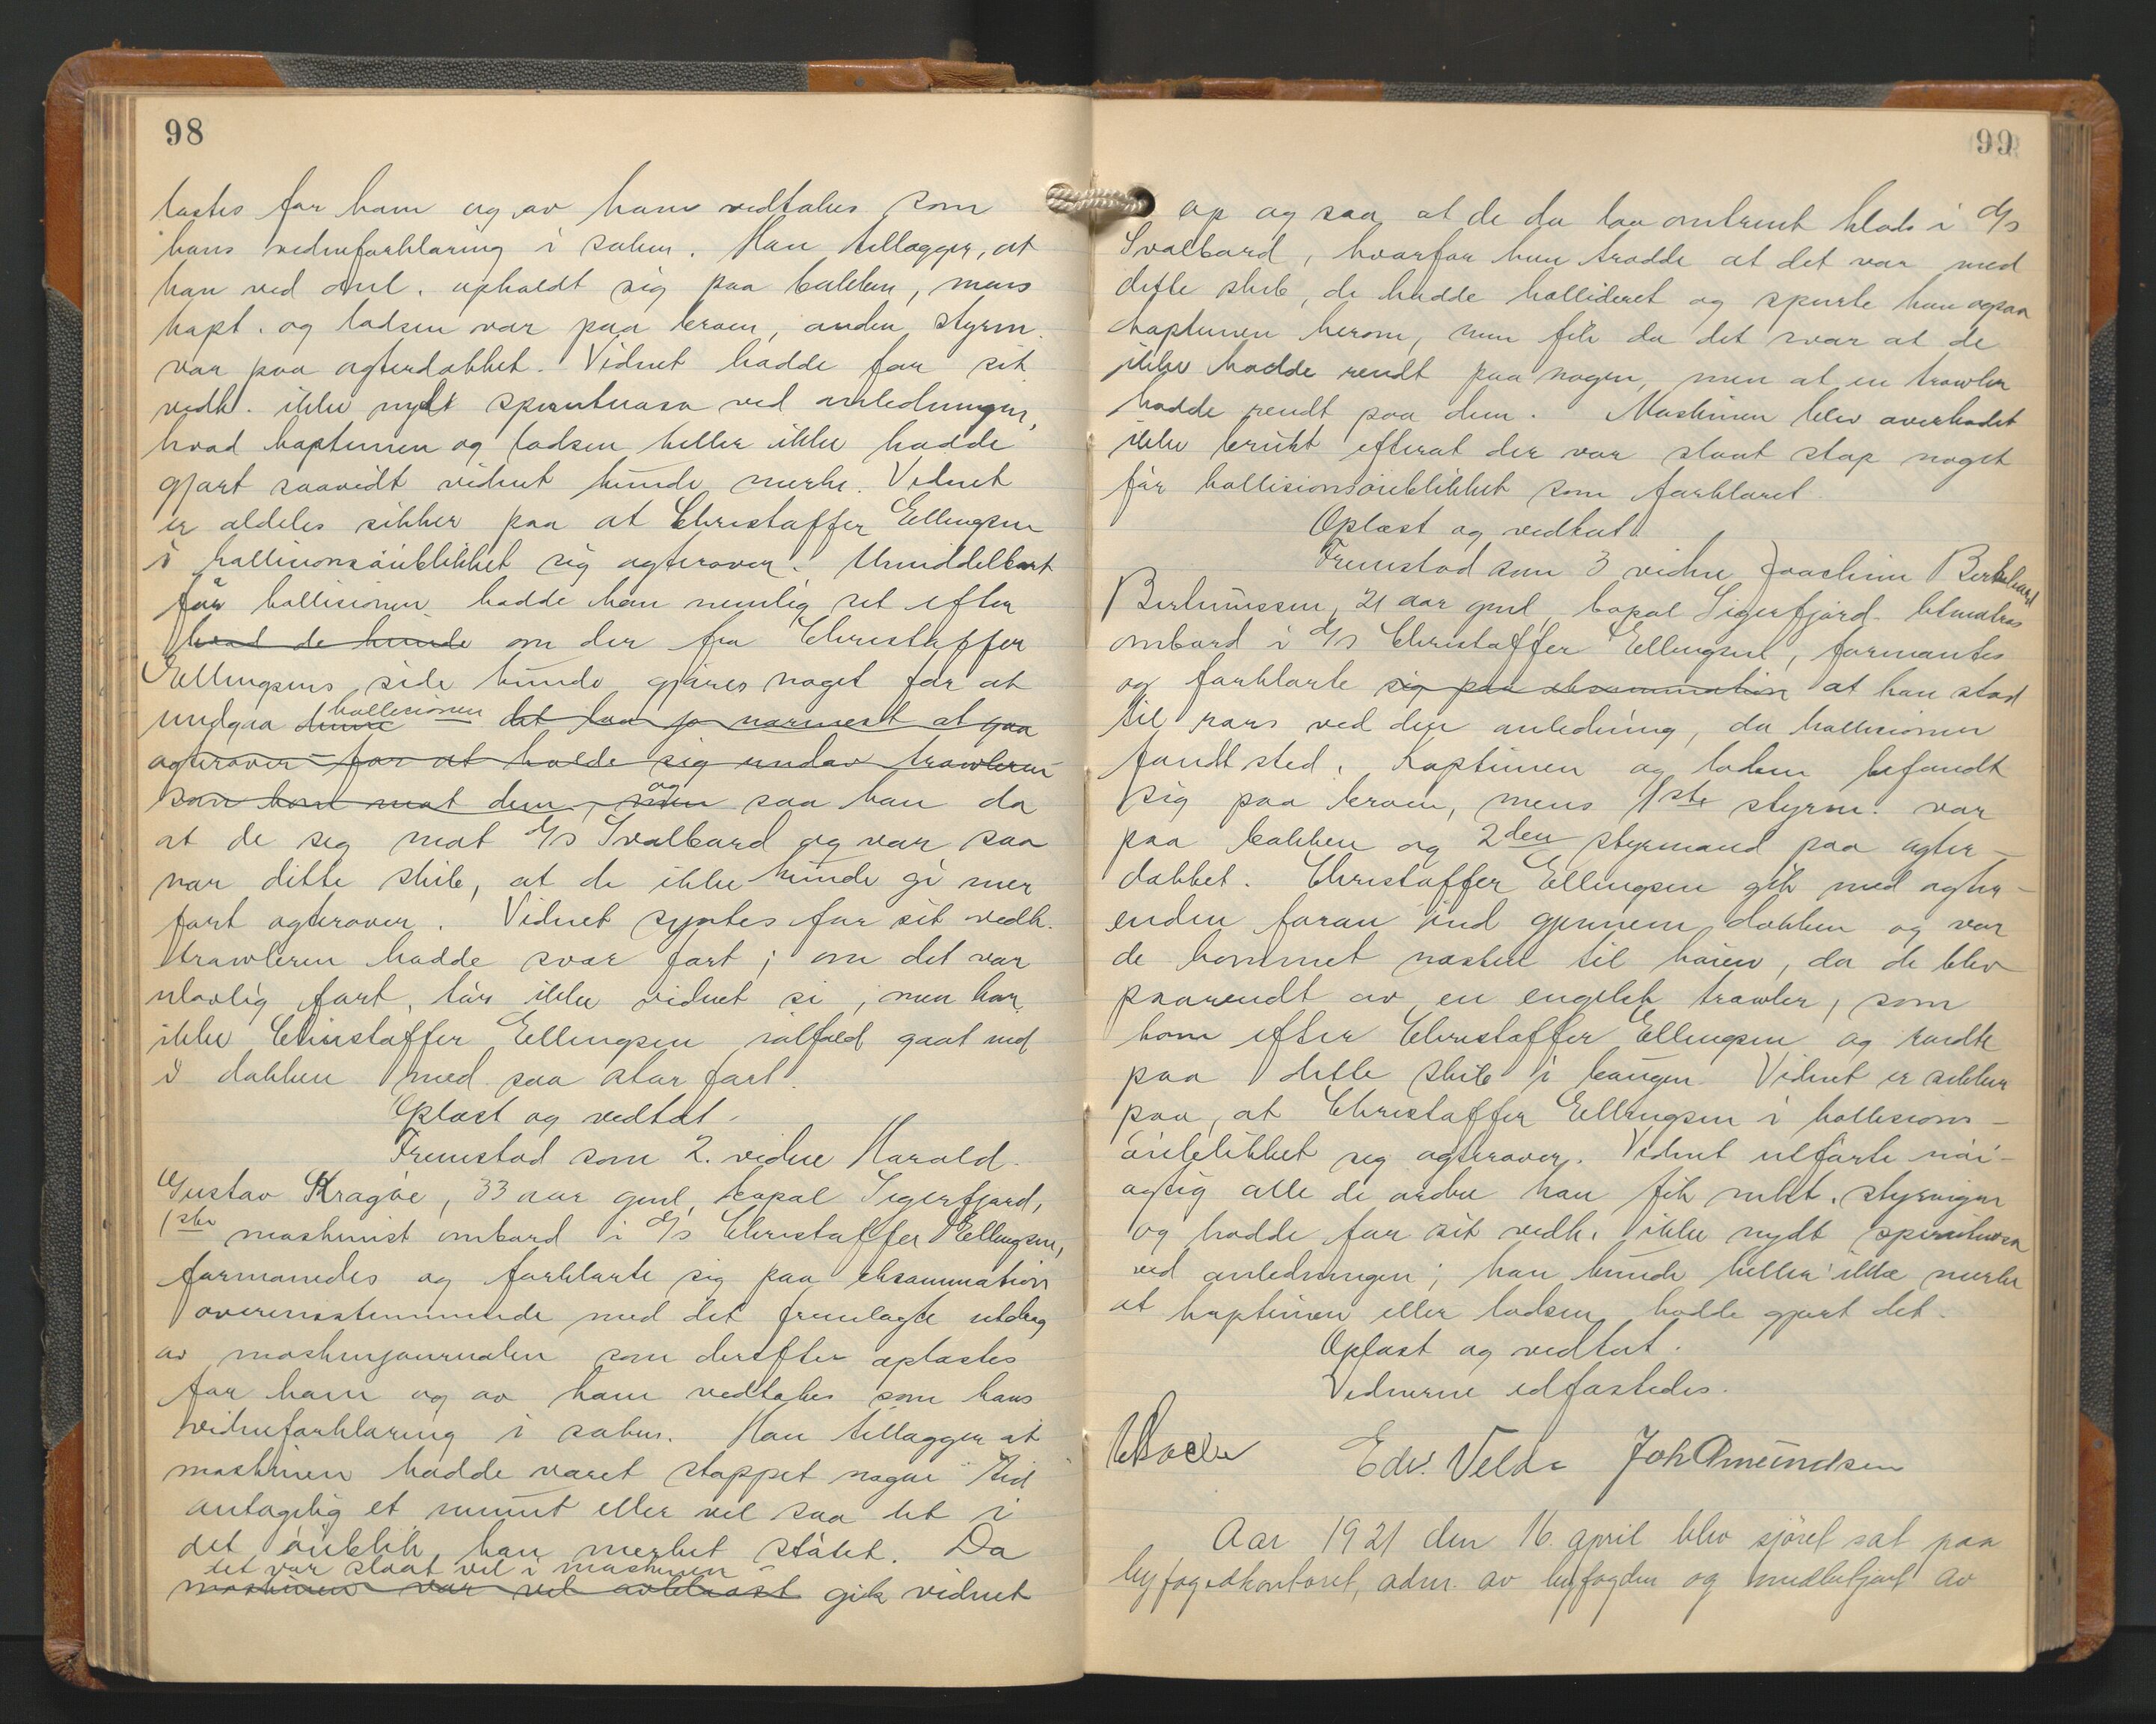 98
lastes for ham og av ham vedtokes som
hans vidneforklaring i saken. Han tillægger, at
han ved anl. opholdt sig paa bakken, mens
kapt. og lodsen var paa broen, anden styrm.
var paa agterdækket. Vidnet hadde for sit
vedk. ikke nydt spirituosa ved anledningen,
hvad kapteinen og lodsen heller ikke hadde
gjort saavidt vidnet kunde merke. Vidnet
er aldeles sikker paa at Christoffer Ellingsen
i kollisionsøieblikket sig agterover. Umiddelbart
før kollisionen hadde han nemlig set efter
hvad de kunde om der fra Christoffer
Ellingsens side kunde gjøres noget for at
undgaa denne kollisionen det laa jo nærmest at gaa
agterover for at holde sig undav trawleren
som kom mot dem, men og saa han da
at de seg mot d/s Svalbard og var saa
nær dette skib, at de ikke kunde gi mer
fart agterover. Vidnet syntes for sit vedk.
trawleren hadde svær fart; om det var
ulovlig fart, tør ikke vidnet si, men har
ikke Christoffer Ellingsen ialfald gaat ind
i dokken med saa stor fart.
Oplæst og vedtat.
Fremstod som 2. vidne Harald
Gustav Kragøe, 33 aar gml, bopæl Sigerfjord,
1ste maskinist ombord i d/s Christoffer Ellingsen,
formanedes og forklarte sig paa eksamination
overensstemmende med det fremlagte utdrag
av maskinjournalen som derefter oplæstes
for ham og av ham vedtokes som hans
vidneforklaring i saken. Han tillægger at
maskinen hadde været stoppet nogen tid
antagelig et minut eller vel saa det i
det øieblik han merket støtet. Da
det var slaat vel i maskinen
maskinen var vel avblaast gik vidnet
99
op og saa at de da laa omtrent klods i d/s
Svalbard, hvorfor han trodde at det var med
dette skib, de hadde kollideret og spurte han ogsaa
kapteinen herom, men fik da det svar at de
ikke hadde rendt paa nogen, men at en trawler
hadde rendt paa dem. Maskinen blev overhodet
ikke brukt efterat der var slaat stop noget
før kollisionsøieblikket som forklaret.
Oplæst og vedtat.
Fremstod som 3 vidne Joachim Bernhard
Berhnussen, 21 aar gml, bopæl Sigerfjord letmatros
ombord i d/s Christoffer Ellingsen, formantes
og forklarte sig paa eksamination at han stod
til rors ved den anledning, da kollisionen
fandt sted. Kapteinen og lodsen befandt
sig paa broen, mens 1ste styrm. var
paa bakken og 2den styrmand paa agter-
dækket. Christoffer Ellingsen gik med agter-
enden foran ind gjennem dokken og var
de kommet næsten til køien, da de blev
paarendt av en engelsk trawler, som
kom efter Christoffer Ellingsen og rendte
paa dette skib i baugen. Vidnet er sikker
paa, at Christoffer Ellingsen i kollisions-
øieblikket seg agterover. Vidnet utførte nøi-
agtig alle de ordre han fik mht. styringen
og hadde for sit vedk. ikke nydt spirituosa
ved anledningen; han kunde heller ikke merke
at kapteinen eller lodsen hadde gjort det.
Oplæst og vedtat.
Vidnerne edfæstedes.
Edv. Velde Joh Amundsen
Aar 1921 den 16. april blev sjøret sat paa
byfogedkontoret, adm. av byfogden og meddelgjort av